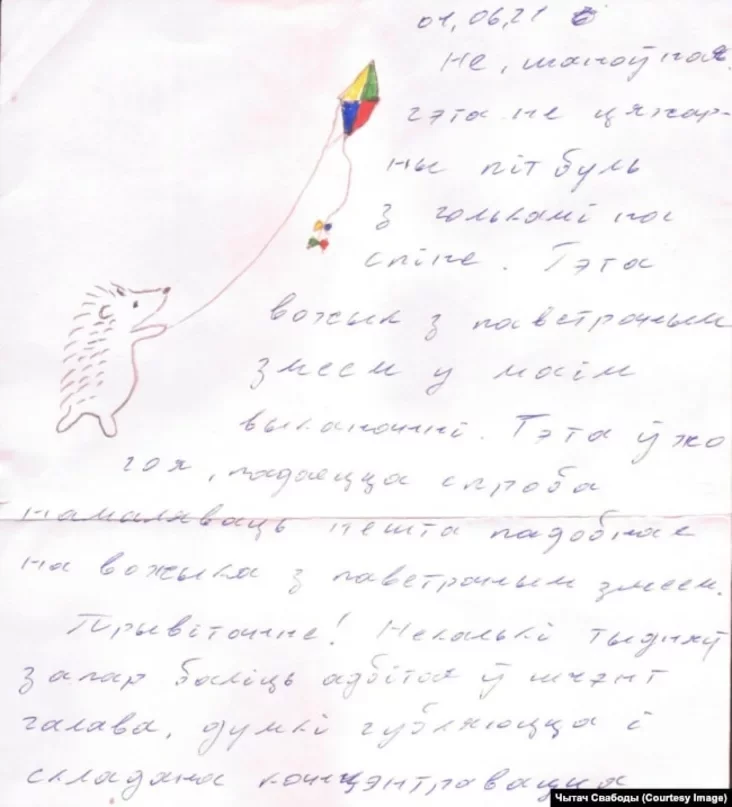 01,06,21
Не, шаноўная.
гэта не цяжар-
ны пітбуль
з голькамі на
спіне. Гэта
вожык з паветраным
змеем у маім
выкананні. Гэта ўжо
гоя, падаецца спроба
намаляваць нешта падобнае
на вожыка з паветраным змеем.
Прывітанне! Некалькі тыдняў
запар баліць адбітая ў шчэнт
галава, думкі губляюцца і
складана канцэнтравацца
Чытач Свабоды (Courtesy Image)